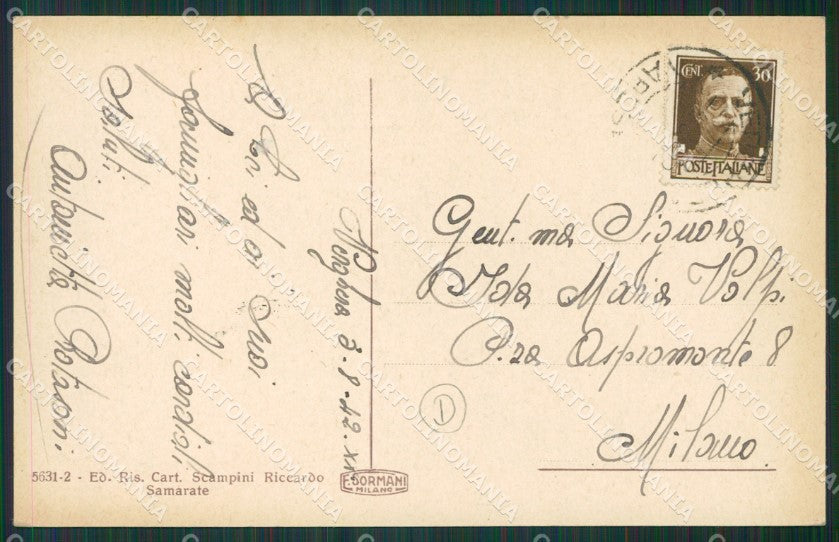 A Lei ed ai Suoi
famigliari molti cordiali
saluti.
Antonietta
8. 42. XX
Gent.ma Signora
Ida Maria Volpi.
P.za Aspromonte 8
Milano.
D
CENT. 30
POSTE ITALIANE
5631-2 - Ed. Ris. Cart. Scampini Riccardo
Samarate
F. SORMANI
MILANO
CARTOLINOMANIA